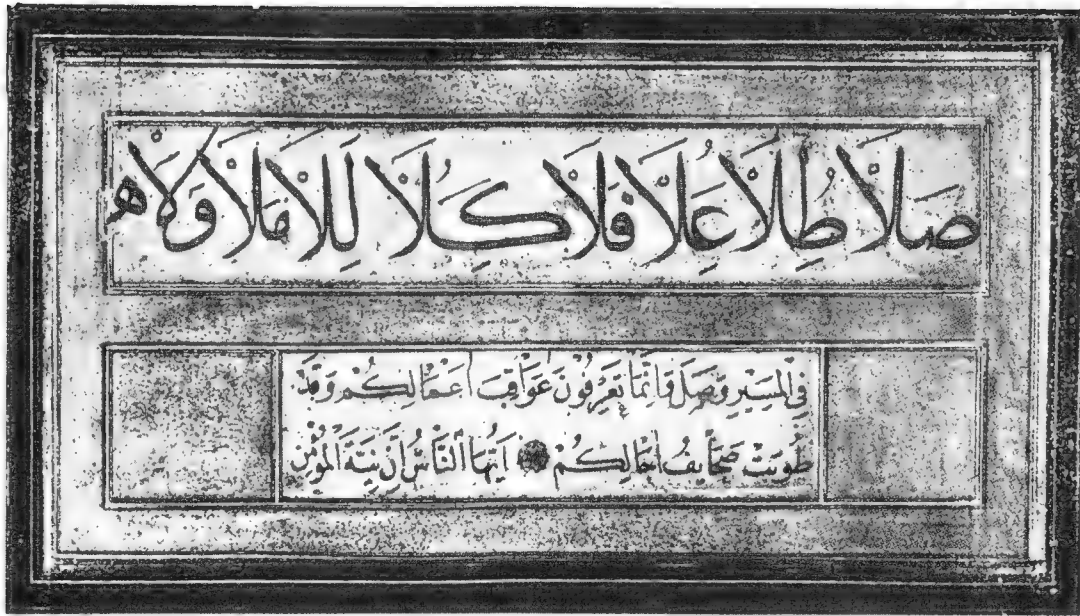 صلا طلا علا فلا كلا للا ملا ولا ه
في المسير وصل فانما تعرفون عواقب اعمالكم وقد
طويت صحايف اجالكم ايها الناس ان نية المؤمن